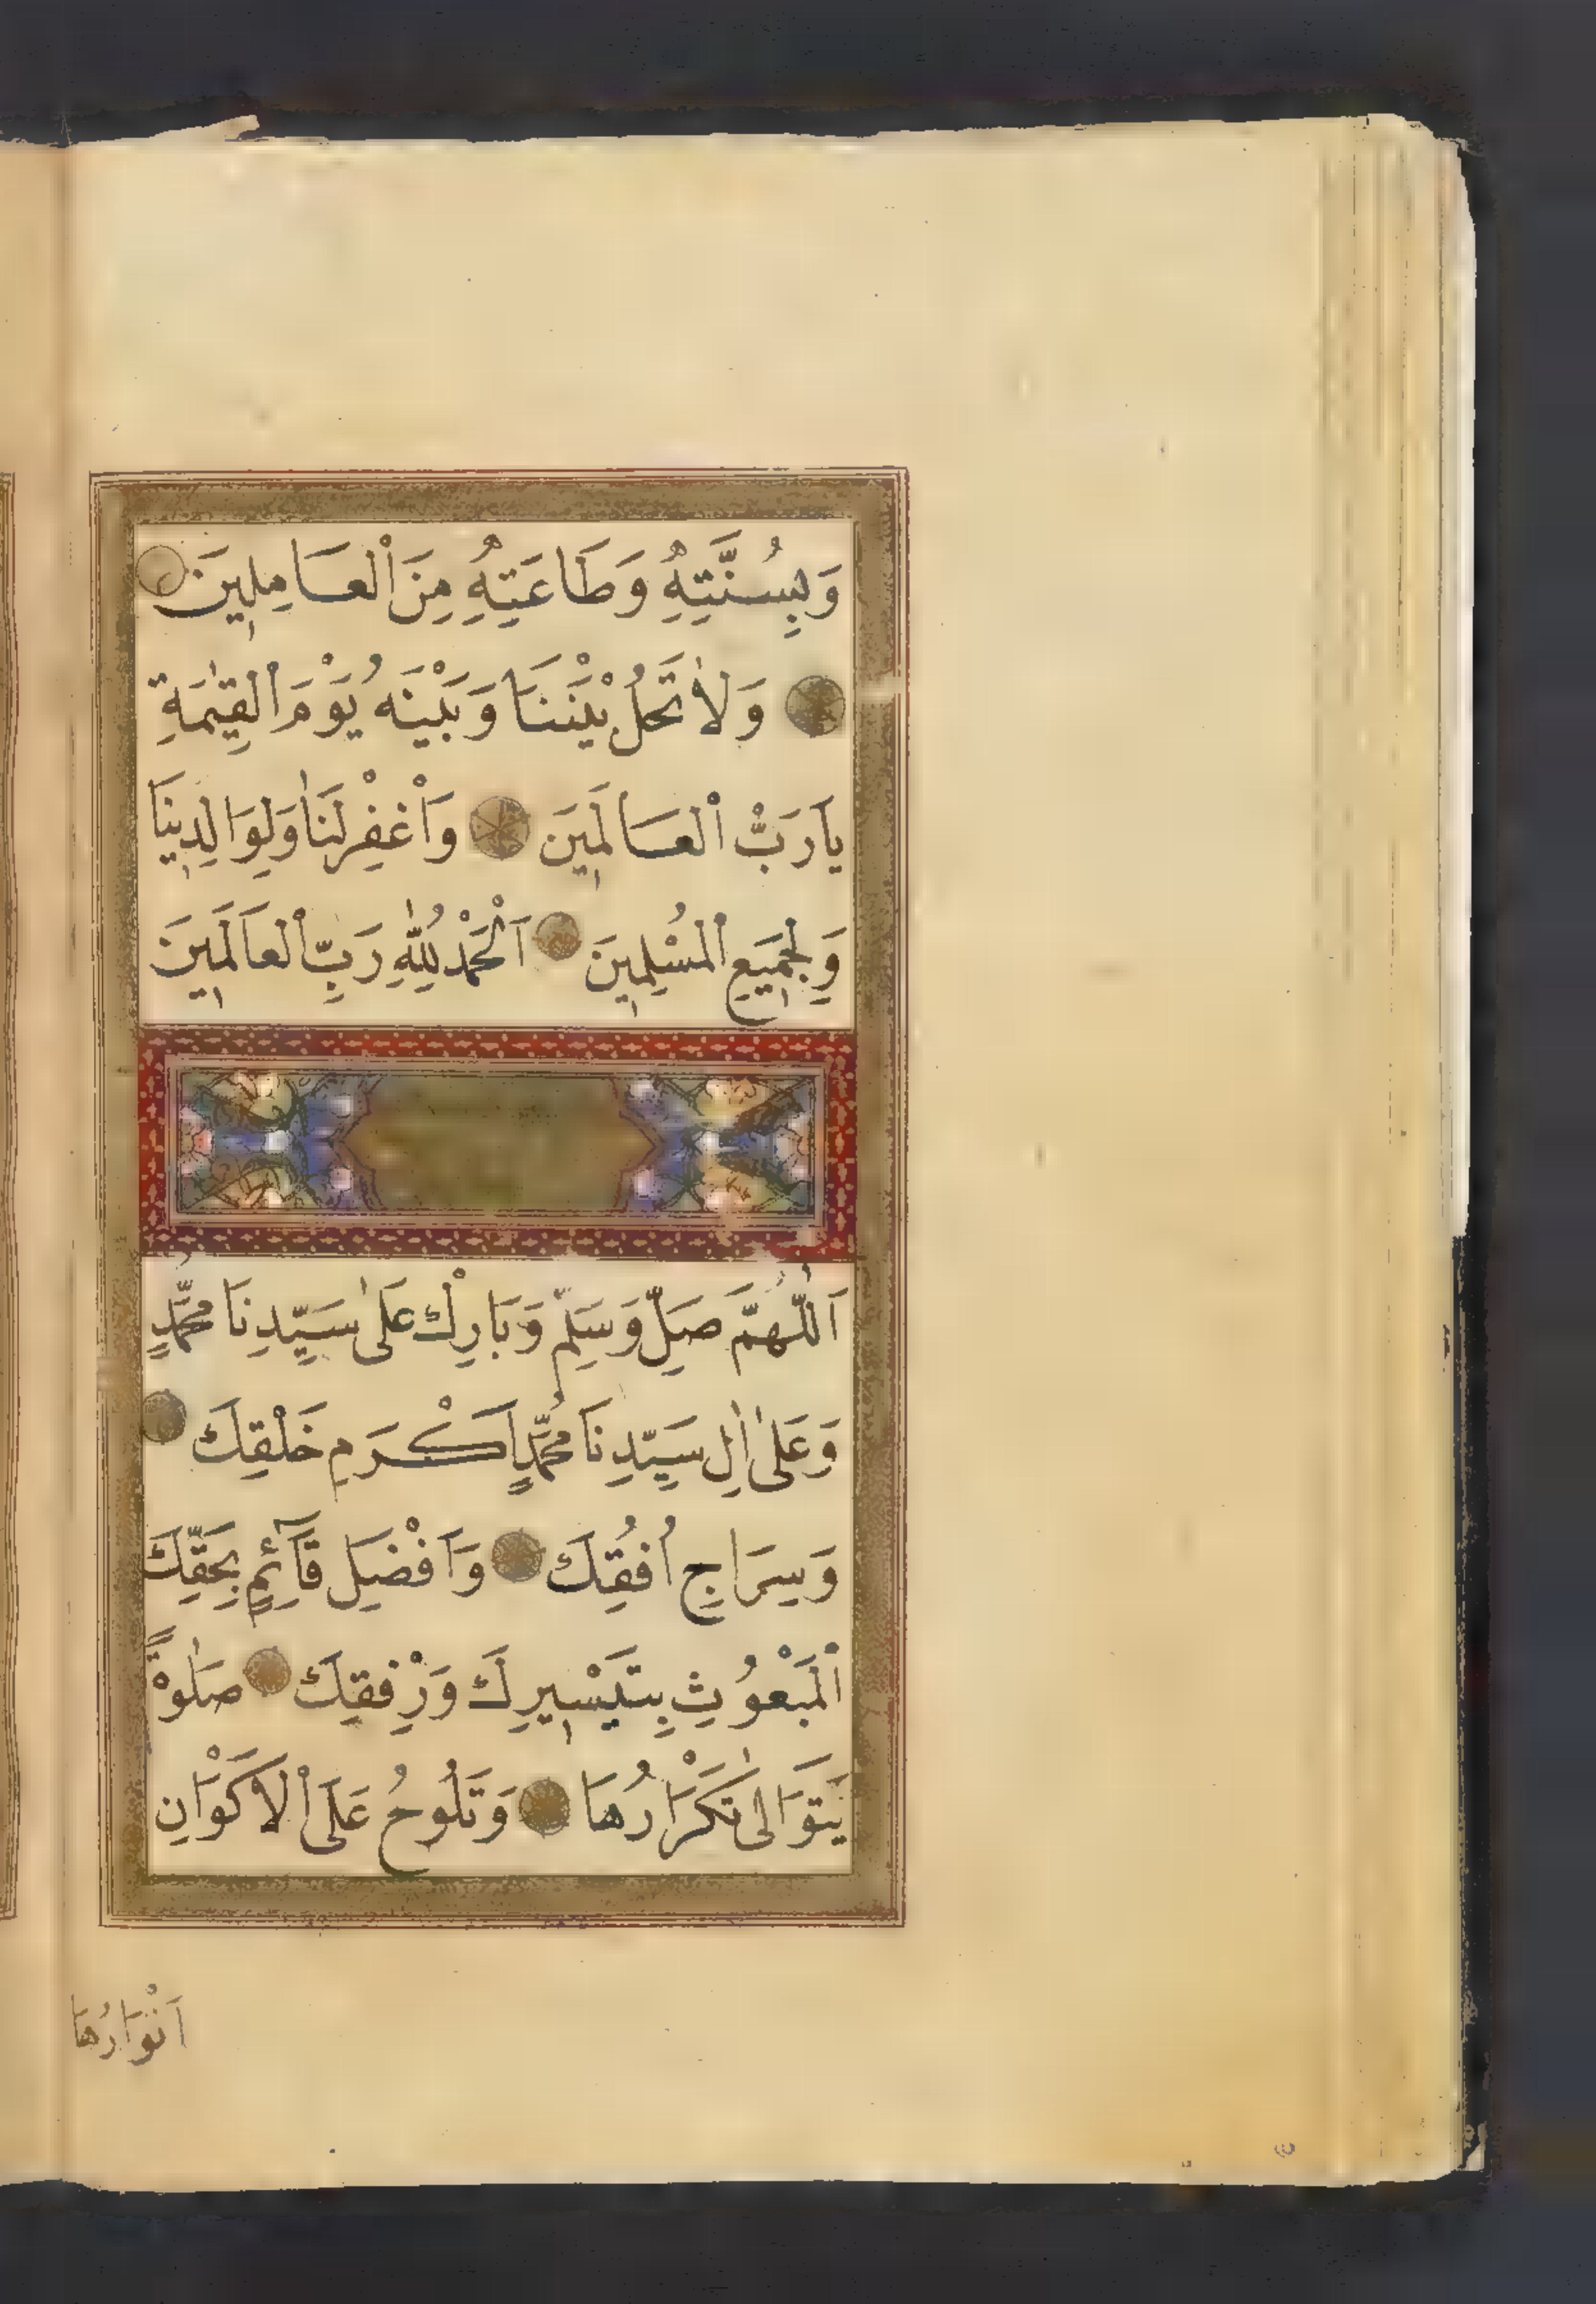 وَبِسُنَّتِهِ وَطَاعَتِهِ مِنَ الْعَامِلِينَ
وَلَا تَحُلْ بَيْنَنَا وَبَيْنَهُ يَوْمَ الْقِيٰمَةِ
يَا رَبَّ الْعَالَمِينَ وَاغْفِرْ لَنَا وَلِوَالِدِينَا
وَلِجَمِيعِ الْمُسْلِمِينَ اَلْحَمْدُ لِلّٰهِ رَبِّ الْعَالَمِينَ
اَللّٰهُمَّ صَلِّ وَسَلِّمْ وَبَارِكْ عَلٰى سَيِّدِنَا مُحَمَّدٍ
وَعَلٰى اٰلِ سَيِّدِنَا مُحَمَّدٍ اَكْرَمِ خَلْقِكَ
وَسِرَاجِ اُفُقِكَ وَاَفْضَلِ قَآئِمٍ بِحَقِّكَ
الْمَبْعُوثِ بِتَيْسِيرِكَ وَرِفْقِكَ صَلٰوةً
يَتَوَالٰى تَكْرَارُهَا وَتَلُوحُ عَلَى الْاَكْوَانِ
اَنْوَارُهَا